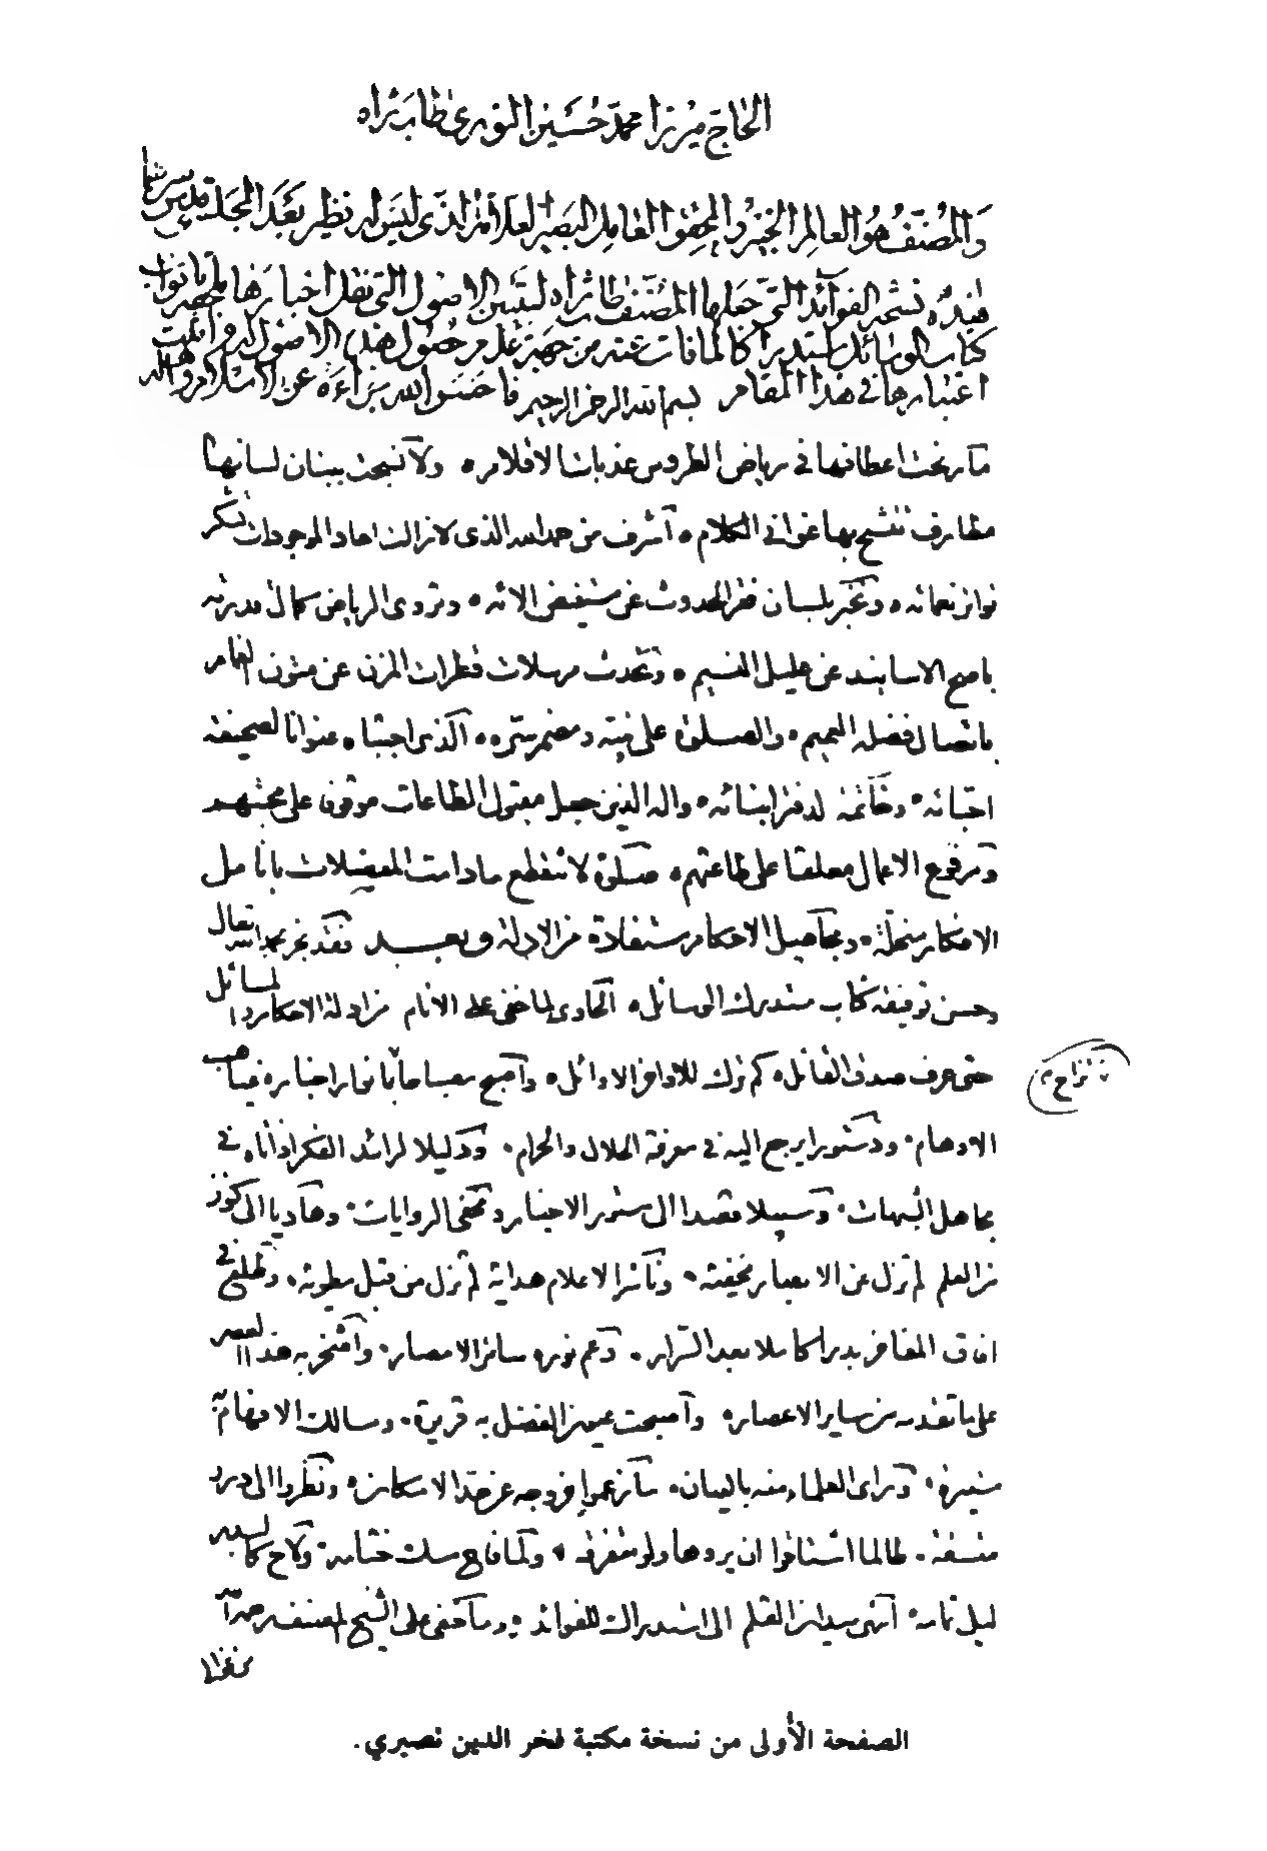 الحاج ميرزا محمد حسين النوري طاب ثراه
والمصنف هو العالم الخبير والمحقق الفاضل البصير العلامة الذي ليس له نظير بعد المجلسي قدس سرهما
هذه نسخة الفوائد التي جعلها المصنف طاب ثراه لتبيين الاصول التي نقل اخبارها
كتاب الوسائل مستدركا لما فات عنه من جهة عدم حضول هذه الاصول
اعتبارها في هذا المقام بسم الله الرحمن الرحيم عن الاسلام واهله
ما رنحت اعطافها في رياض الطروس عذبات الاقلام ولا نسجت ببنان لسانها
مطارف تتشح بها غواني الكلام اشرف من حمد الله الذي لا زالت احاد الموجودات تشكر
تواتر نعمائه وتخبر بلسان فقر الحدوث عن مستفيض الائه وتروي الرياض كمال قدرته
باصح الاسانيد عن عليل النسيم وتحدث مرسلات قطرات المزن عن متون الغمام
باتصال فضله العميم والصلوة على نبيه ومضمر سره الذي اجتباه عنوانا لصحيفة
احبائه وخاتمة لدفتر انبيائه واله الذين جعل مقبول الطاعات موقوفا على محبتهم
ومرفوع الاعمال معلقا على طاعتهم صلوة لا تنقطع مادامت المعضلات بانامل
الافكار منحلة ومجاهيل الاحكام مستفادة من الادلة وبعد فقد نجز بحمد الله تعالى
وحسن توفيقه كتاب مستدرك الوسائل الحاوي لما خفي على الانام من ادلة الاحكام والمسائل
حتى عرف صدق القائل كم ترك للاواخر الاوائل واصبح مصباحا بانوار اخباره غياهب
الاوهام ودستورا يرجع اليه في معرفة الحلال والحرام ودليلا لرائد الفكر اذا تاه في
مجاهل الشبهات وسبيلا مقصدا الى مستور الاخبار ومخفي الروايات وهاديا الى كنوز
من العلم لم تزل عن الابصار مخفية وناشرا لاعلام هداية لم تزل من قبل مطوية وطلع في
افاق المفاخر بدرا كاملا بعد السرار وعم نوره سائر الامصار وافتخر به هذا العصر
على ما تقدمه من ساير الاعصار واصبحت عين الفضل به قريرة ومسالك الافهام به
منيرة وراى العلماء منه بالعيان ما زعموا خروجه عن حد الامكان ونظروا الى درر
متسقة طالما اشتاقوا ان يروها ولو متفرقة ولما فاح مسك ختامه ولاح كالبدر
ليل تمامه انتهى سير القلم الى استدراك الفوائد وما خفي على الشيخ المصنف رحمه الله
الصفحة الأولى من نسخة مكتبة فخر الدين نصيري.